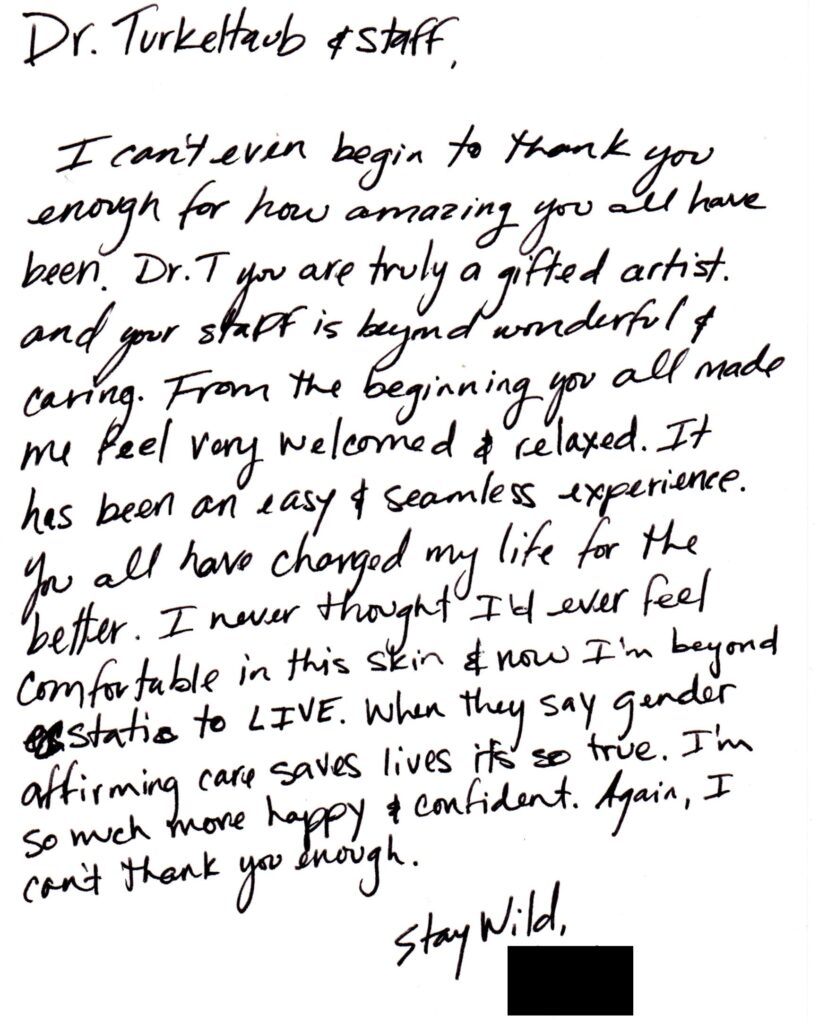 Dr. Turkeltaub & staff,
I can't even begin to thank you
enough for how amazing you all have
been. Dr. T you are truly a gifted artist.
and your staff is beyond wonderful &
caring. From the beginning you all made
me feel very welcomed & relaxed. It
has been an easy & seamless experience.
You all have changed my life for the
better. I never thought I'd ever feel
comfortable in this skin & now I'm beyond
ecstatic to LIVE. When they say gender
affirming care saves lives it's so true. I'm
so much more happy & confident. Again, I
can't thank you enough.
Stay Wild,